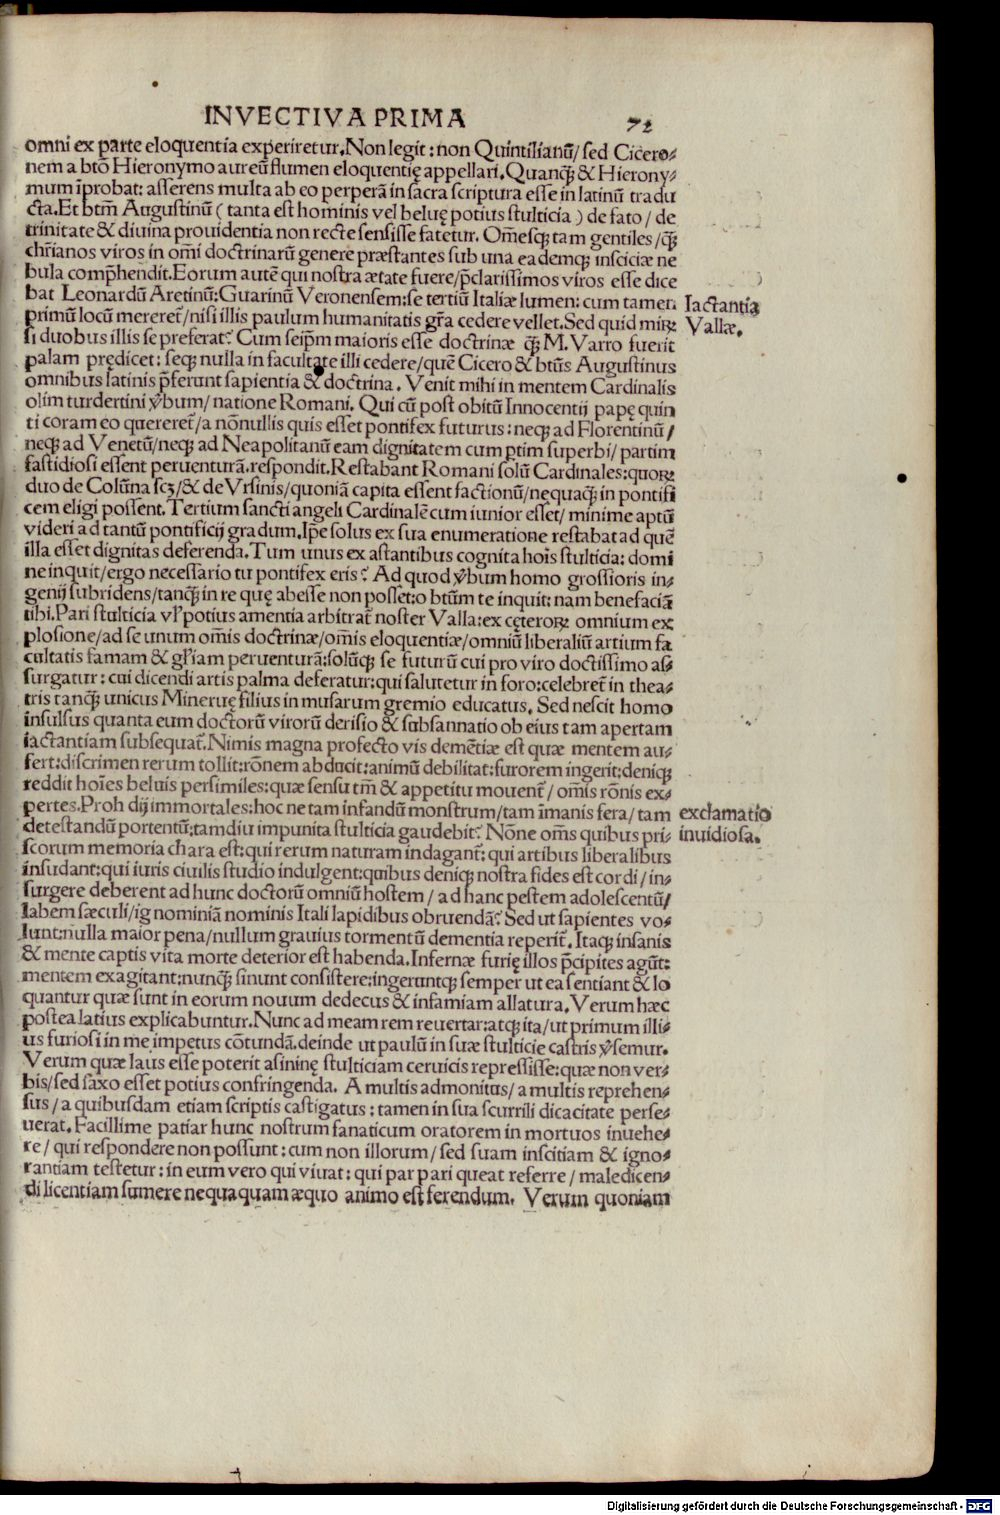 INVECTIVA PRIMA
72
omni ex parte eloquentia experiretur. Non legit: non Quintilianū/ sed Cicero⸗
nem a btō Hieronymo aureū flumen eloquentię appellari. Quanqꝫ & Hierony⸗
mum īprobat: asserens multa ab eo perperā in sacra scriptura esse in latinū tradu
cta. Et btm̄ Augustinū ( tanta est hominis vel beluę potius stulticia ) de fato / de
trinitate & diuina prouidentia non recte sensisse fatetur. Om̄esqꝫ tam gentiles / qꝫ̄
chr̄ianos viros in om̄i doctrinarū genere præstantes sub una eademqꝫ insciciæ ne
bula comp̄hendit. Eorum autē qui nostra ætate fuere/ p̄clarissimos viros esse dice
bat Leonardū Aretinū: Guarinū Veronensem: se tertiū Italiæ lumen: cum tamen
Iactantia
primū locū mereret̄/ nisi illis paulum humanitatis gr̄a cedere vellet. Sed quid mirꝝ
Vallæ.
si duobus illis se preferat? Cum seip̄m maioris esse doctrinæ qꝫ̄ M. Varro fuerit
palam prędicet: seqꝫ nulla in facultate illi cedere/ quē Cicero & btūs Augustinus
omnibus latinis p̄ferunt sapientia & doctrina. Venit mihi in mentem Cardinalis
olim turdertini v̄bum/ natione Romani. Qui cū post obitū Innocentij papę quin
ti coram eo quereret̄/ a nōnullis quis esset pontifex futurus: neqꝫ ad Florentinū /
neqꝫ ad Venetū/ neqꝫ ad Neapolitanū eam dignitatem cum ꝑtim superbi/ partim
fastidiosi essent peruenturā. respondit. Restabant Romani solū Cardinales: quoꝝ
duo de Colūna scꝫ/ & de Vrsinis/ quoniā capita essent factionū/ nequaqꝫ̄ in pontifi
cem eligi possent. Tertium sancti angeli Cardinalē cum iunior esset/ minime aptū
videri ad tantū pontificij gradum. Ip̄e solus ex sua enumeratione restabat ad quē
illa esset dignitas deferenda. Tum unus ex astantibus cognita hoīs stulticia: domi
ne inquit/ ergo necessario tu pontifex eris? Ad quod v̄bum homo grossioris in⸗
genij subridens/ tanqꝫ̄ in re quę abesse non posset: o btūm te inquit: nam benefaciā
tibi. Pari stulticia vl̄ potius amentia arbitrat̄ noster Valla: ex cęteroꝝ omnium ex
plosione/ ad se unum om̄is doctrinæ/ om̄is eloquentiæ/ omniū liberaliū artium fa
cultatis famam & gl̄iam peruenturā: solūqꝫ se futurū cui pro viro doctissimo as⸗
surgatur: cui dicendi artis palma deferatur: qui salutetur in foro: celebret̄ in thea⸗
tris tanqꝫ̄ unicus Mineruę filius in musarum gremio educatus. Sed nescit homo
insulsus quanta eum doctorū virorū derisio & subsannatio ob eius tam apertam
iactantiam subsequat̄. Nimis magna profecto vis demētiæ est quæ mentem au⸗
fert: discrimen rerum tollit: rōnem abducit: animū debilitat: furorem ingerit: deniqꝫ
reddit hoīes beluis persimiles: quæ sensu tm̄ & appetitu mouent̄/ om̄is rōnis ex⸗
pertes. Proh dij immortales: hoc ne tam infandū monstrum/ tam īmanis fera/ tam
exclamatio
detestandū portentū: tamdiu impunita stulticia gaudebit? Nōne om̄s quibus pri⸗
inuidiosa.
scorum memoria chara est: qui rerum naturam indagant̄: qui artibus liberalibus
insudant: qui iuris ciuilis studio indulgent: quibus deniqꝫ nostra fides est cordi/ in⸗
surgere deberent ad hunc doctorū omniū hostem / ad hanc pestem adolescentū/
labem sæculi/ ignominiā nominis Itali lapidibus obruendā? Sed ut sapientes vo⸗
lunt: nulla maior pena/ nullum grauius tormentū dementia reperit̄. Itaqꝫ insanis
& mente captis vita morte deterior est habenda. Infernæ furię illos p̄cipites agūt:
mentem exagitant: nunqꝫ̄ sinunt consistere: ingeruntqꝫ semper ut ea sentiant & lo
quantur quæ sunt in eorum nouum dedecus & infamiam allatura. Verum hæc
postea latius explicabuntur. Nunc ad meam rem reuertar: atqꝫ ita/ ut primum illi⸗
us furiosi in me impetus cōtundā. deinde ut paulū in suæ stulticie castris v̄semur.
Verum quæ laus esse poterit asininę stulticiam ceruicis repressisse: quæ non ver⸗
bis/ sed saxo esset potius confringenda. A multis admonitus/ a multis reprehen⸗
sus/ a quibusdam etiam scriptis castigatus: tamen in sua scurrili dicacitate perse⸗
uerat. Facillime patiar hunc nostrum fanaticum oratorem in mortuos inuehe⸗
re/ qui respondere non possunt: cum non illorum/ sed suam inscitiam & igno⸗
rantiam testetur: in eum vero qui viuat: qui par pari queat referre/ maledicen⸗
di licentiam sumere nequaquam æquo animo est ferendum. Verum quoniam
Digitalisierung gefördert durch die Deutsche Forschungsgemeinschaft - DFG